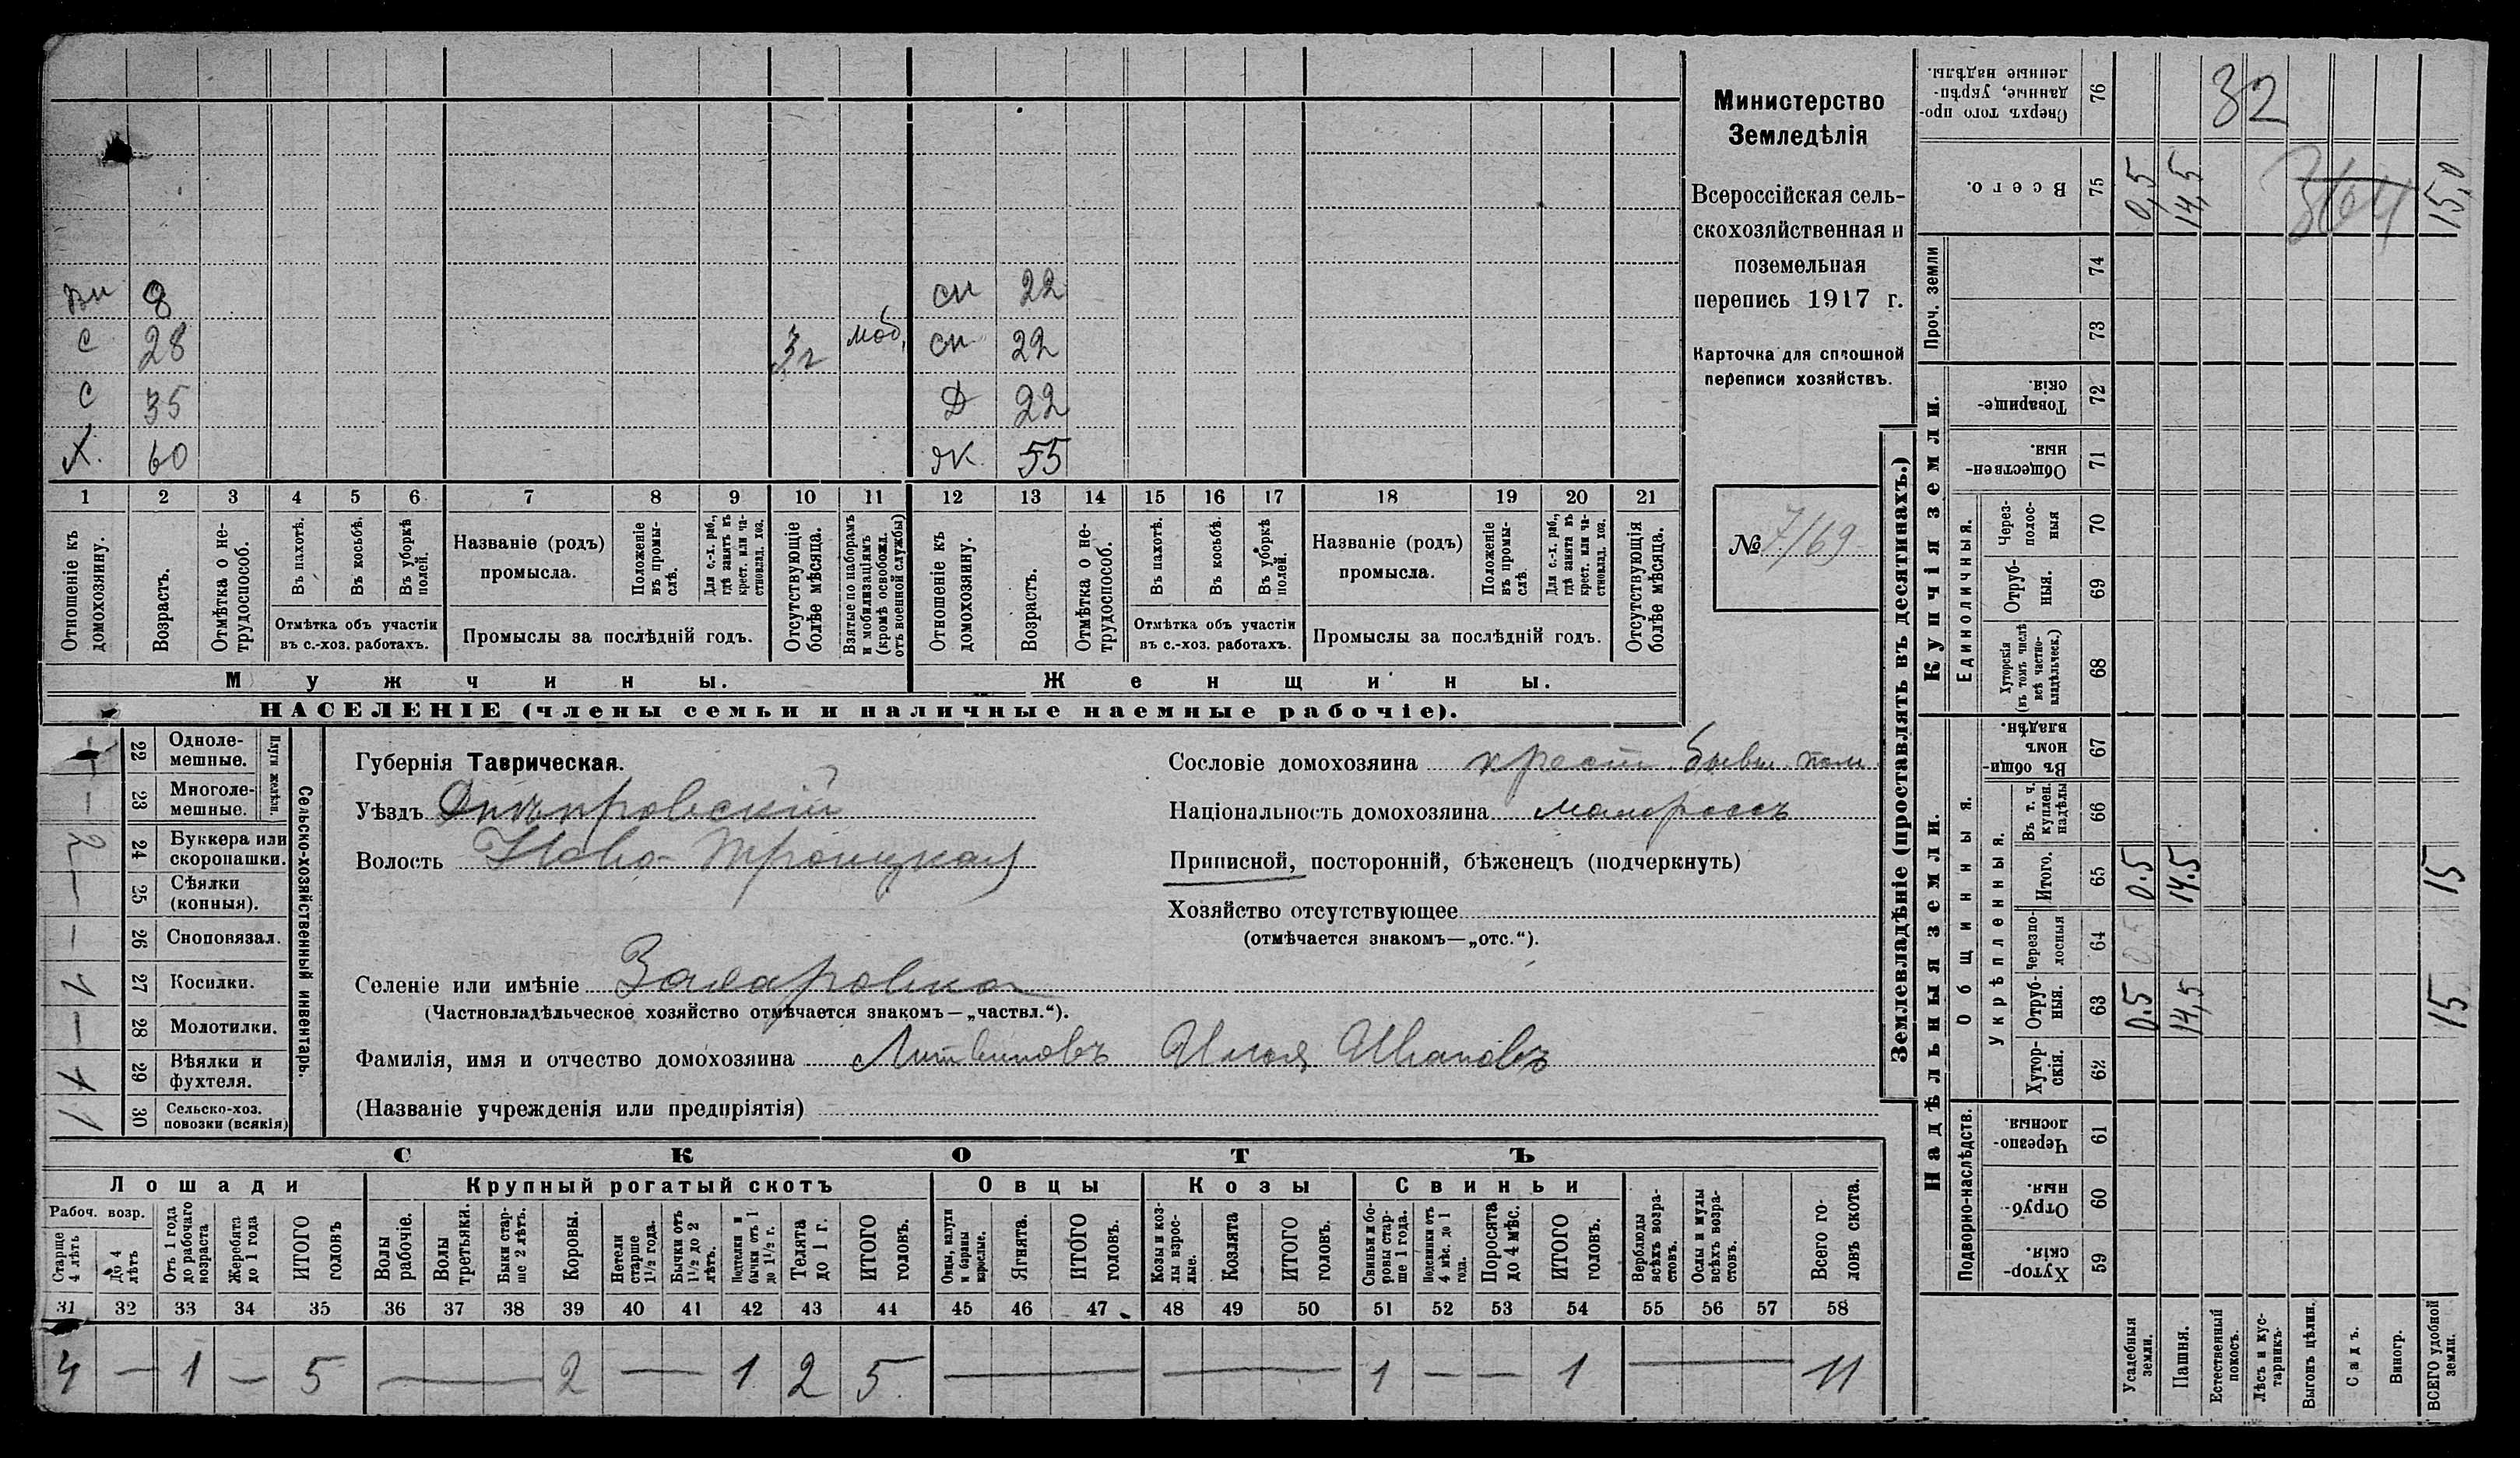 вн 8 сн 22
с 28 3 г моб. сн 22
с 35 Д 22
Х. 60 жк 55
1 2 3 4 5 6 7 8 9 10 11 12 13 14 15 16 17 18 19 20 21
Отношеніе къ домохозяину.
Возрастъ.
Отмѣтка о не-трудоспособ.
Въ пахотѣ.
Въ косьбѣ.
Въ уборкѣ полей.
Отмѣтка объ участіи
въ с.-хоз. работахъ.
Названіе (родъ)
промысла.
Положеніе въ промы-слѣ.
Для с.-х. раб., гдѣ занятъ въ крест. или ча-стновлад. хоз.
Промыслы за послѣдній годъ.
Отсутствующіе болѣе мѣсяца.
Взятые по наборамъ и мобилизаціямъ (кромѣ освобожд. отъ военной службы)
Отношеніе къ домохозяину.
Возрастъ.
Отмѣтка о не-трудоспособ.
Въ пахотѣ.
Въ косьбѣ.
Въ уборкѣ полей.
Отмѣтка объ участіи
въ с.-хоз. работахъ.
Названіе (родъ)
промысла.
Положеніе въ промы-слѣ.
Для с.-х. раб., гдѣ занята въ крест. или ча-стновлад. хоз.
Промыслы за послѣдній годъ.
Отсутствующія болѣе мѣсяца.
Мужчины. Женщины.
НАСЕЛЕНІЕ (члены семьи и наличные наемные рабочіе).
Министерство
Земледѣлія
Всероссійская сель-
скохозяйственная и
поземельная
перепись 1917 г.
Карточка для сплошной
переписи хозяйствъ.
№ 7/69
Сельско-хозяйственный инвентарь.
Плуги желѣзн.
— 22 Одноле-мешные.
— 23 Многоле-мешные.
2 24 Буккера или скоропашки.
— 25 Сѣялки (конныя).
— 26 Сноповязал.
1 27 Косилки.
— 28 Молотилки.
1 29 Вѣялки и фухтеля.
1 30 Сельско-хоз. повозки (всякія)
Губернія Таврическая.
Уѣздъ Днѣпровскій
Волость Ново-Троицкая
Селеніе или имѣніе Захаровка
(Частновладѣльческое хозяйство отмѣчается знакомъ—„частвл.“).
Фамилія, имя и отчество домохозяина Литвиновъ Илья Ивановъ
(Названіе учрежденія или предпріятія)
Сословіе домохозяина крест бывш пом
Національность домохозяина малороссъ
Приписной, посторонній, бѣженецъ (подчеркнуть)
Хозяйство отсутствующее
(отмѣчается знакомъ—„отс.“).
СКОТЪ
Лошади Крупный рогатый скотъ Овцы Козы Свиньи
Рабоч. возр.
Старше 4 лѣтъ
До 4 лѣтъ
Отъ 1 года до рабочаго возраста
Жеребята до 1 года
ИТОГО головъ
Волы рабочіе.
Волы третьяки.
Быки стар-ше 2 лѣтъ.
Коровы.
Нетели старше 1½ года.
Бычки отъ 1½ до 2 лѣтъ.
Подтелки и бычки отъ 1 до 1½ г.
Телята до 1 г.
ИТОГО головъ.
Овцы, валухи и бараны взрослые.
Ягнята.
ИТОГО головъ.
Козы и коз-лы взрос-лые.
Козлята
ИТОГО головъ.
Свиньи и бо-ровы стар-ше 1 года.
Подсвинки отъ 4 мѣс. до 1 года.
Поросята до 4 мѣс.
ИТОГО головъ.
Верблюды всѣхъ возра-стовъ.
Ослы и мулы всѣхъ возра-стовъ.
Всего го-ловъ скота.
31 32 33 34 35 36 37 38 39 40 41 42 43 44 45 46 47 48 49 50 51 52 53 54 55 56 57 58
4 — 1 — 5 — 2 — 1 2 5 — — 1 — — 1 — 11
Землевладѣніе (проставлять въ десятинахъ.)
Надѣльныя земли. Купчія земли. Проч. земли
Подворно-наслѣдств.
Общинныя.
Укрѣпленныя.
Единоличныя.
Хутор-скія. 59
Отруб-ныя. 60
Черезпо-лосныя. 61
Хутор-скія. 62
Отруб-ныя. 63 0.5 14,5 15
Черезпо-лосныя 64
Итого. 65 0.5 14.5 15
Въ т. ч. куплен. надѣлы 66
Въ общин-номъ владѣн. 67
Хуторскія (въ томъ числѣ всѣ частно-владѣльческ.) 68
Отруб-ныя. 69
Через-полос-ныя 70
Обществен-ныя. 71
Товарище-скія. 72
73
74
Всего. 75 0,5 14,5 15,0
Сверхъ того про-данные, укрѣп-ленные надѣлы. 76
32
Усадебныя земли.
Пашня.
Естественный покосъ.
Лѣсъ и кус-тарникъ.
Выгонъ цѣлин.
Садъ.
Виногр.
ВСЕГО удобной земли.